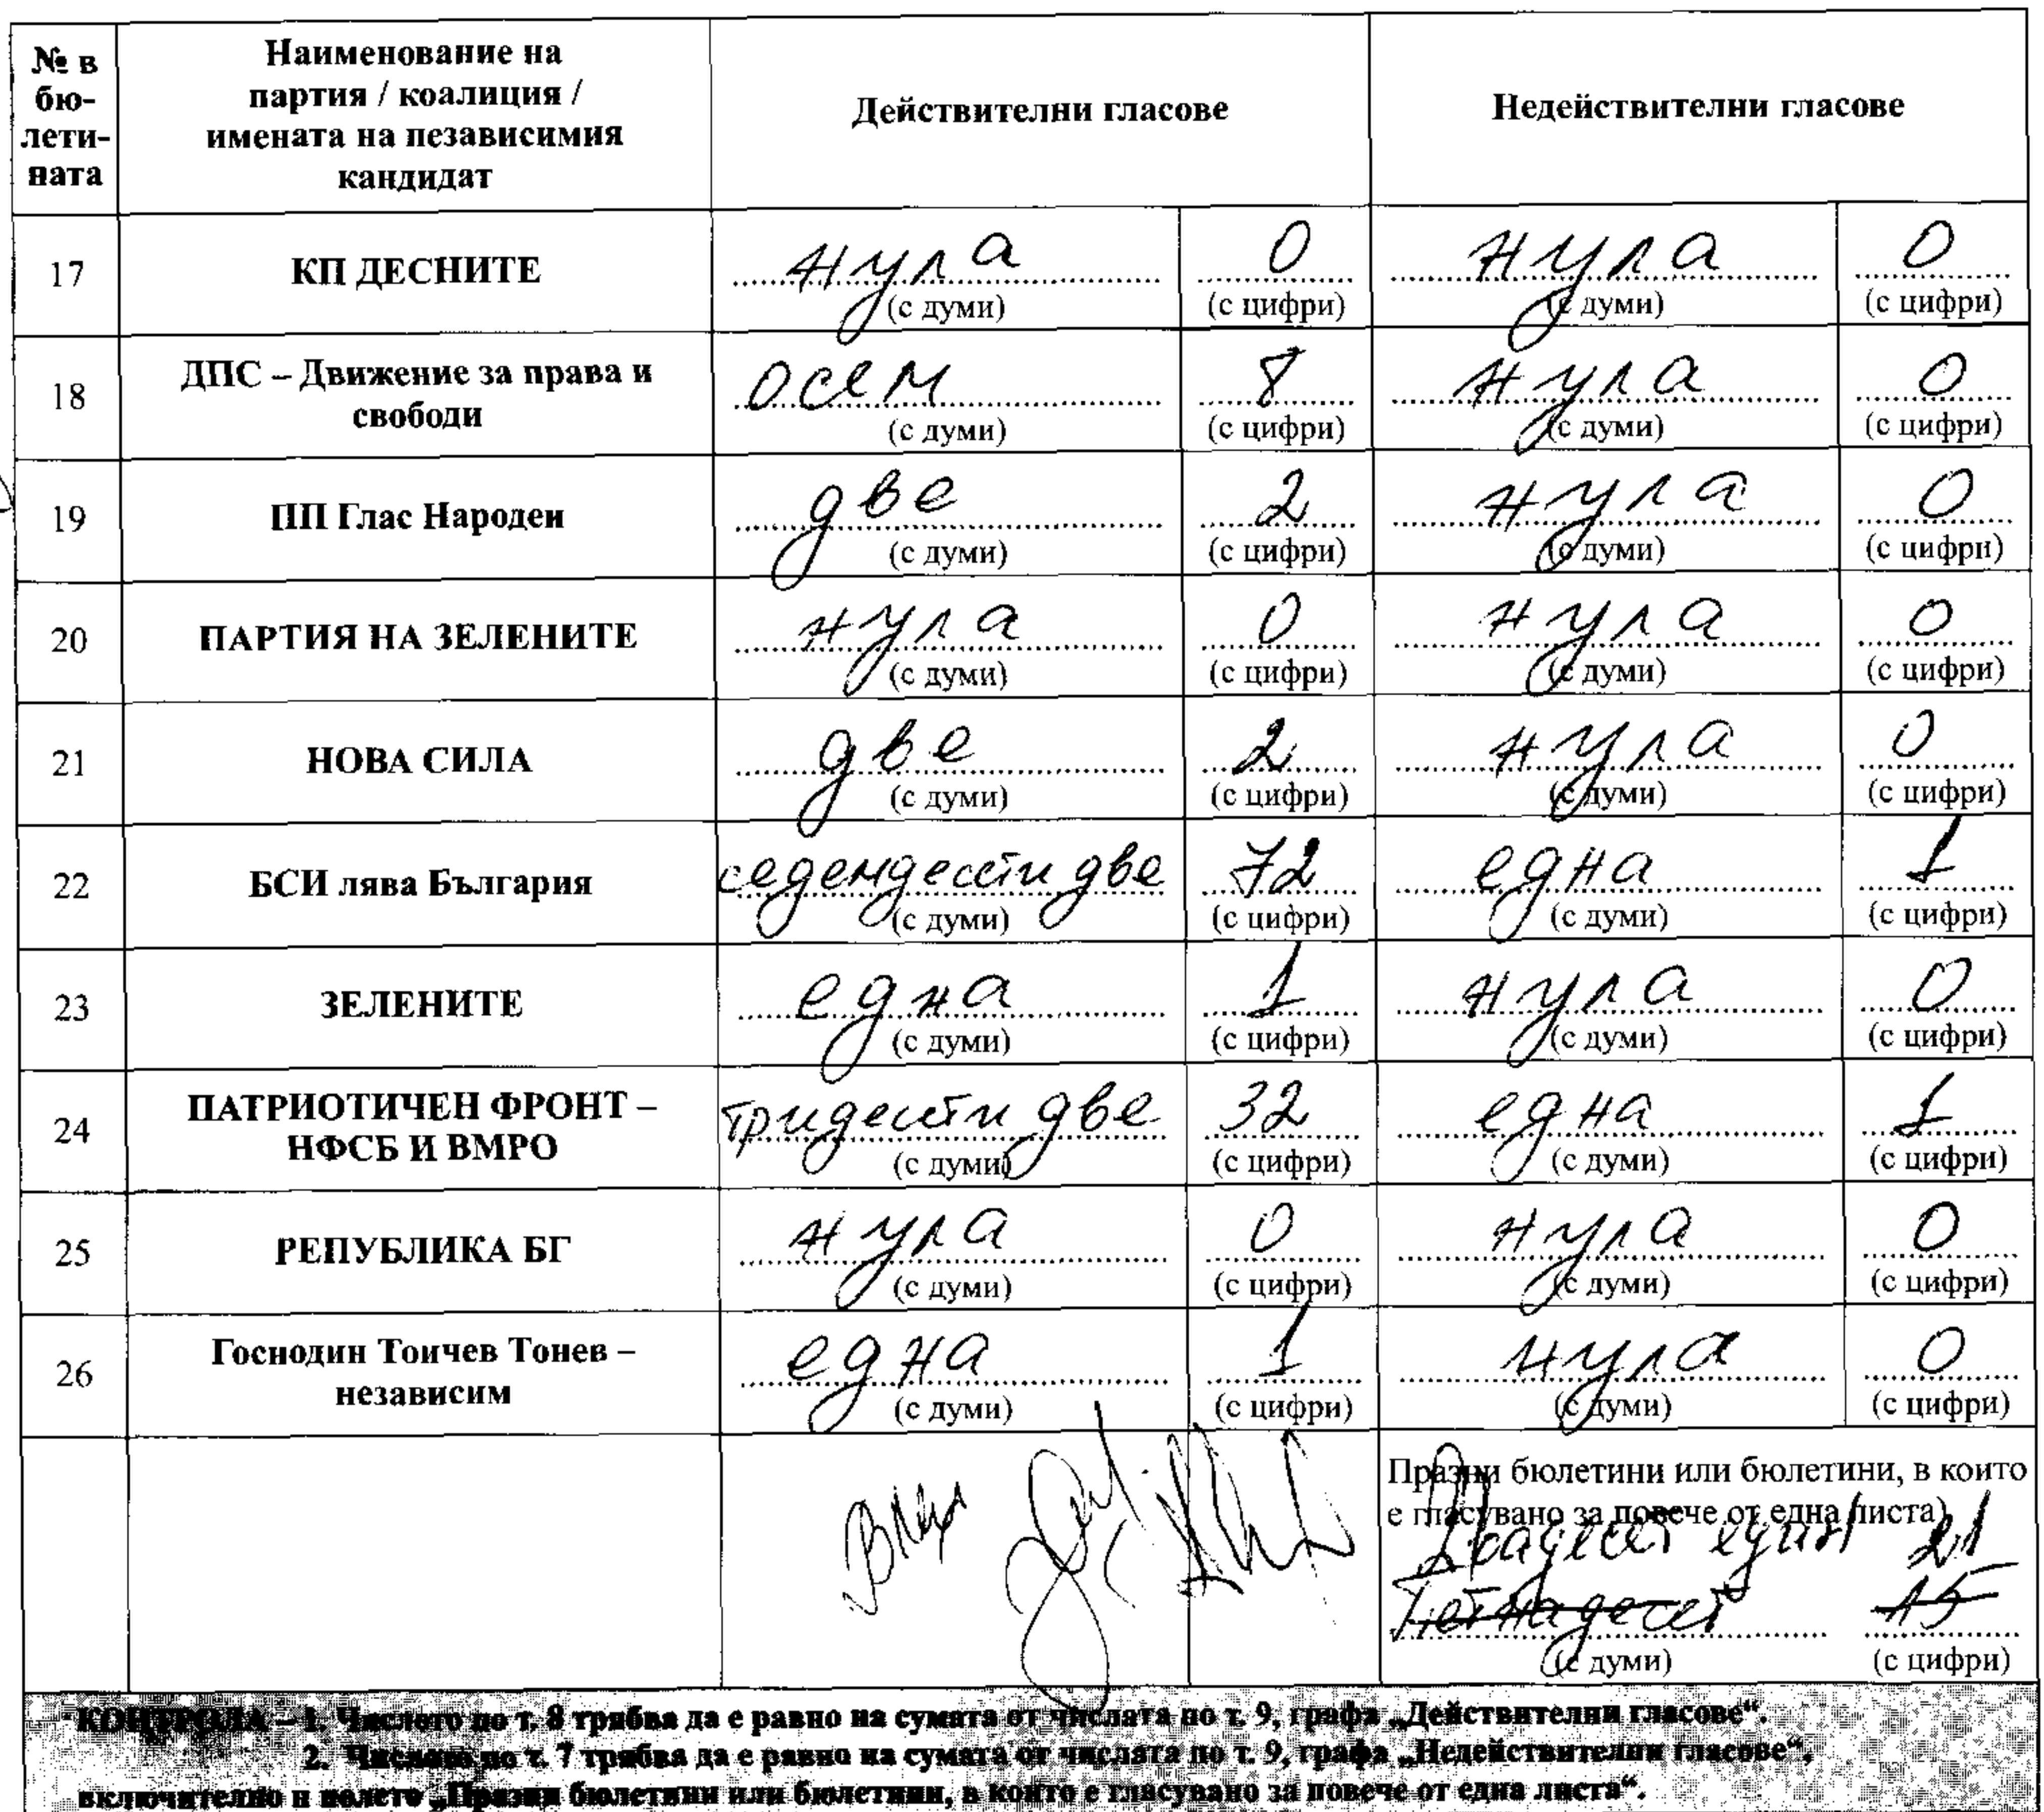 № в бю-лети-ната
Наименование на
партия / коалиция /
имената на независимия
кандидат
Действителни гласове
Недействителни гласове
17 КП ДЕСНИТЕ нула 0 нула 0
(с думи) (с цифри) (с думи) (с цифри)
18 ДПС – Движение за права и свободи осем 8 нула 0
(с думи) (с цифри) (с думи) (с цифри)
19 ПП Глас Народен две 2 нула 0
(с думи) (с цифри) (с думи) (с цифри)
20 ПАРТИЯ НА ЗЕЛЕНИТЕ нула 0 нула 0
(с думи) (с цифри) (с думи) (с цифри)
21 НОВА СИЛА две 2 нула 0
(с думи) (с цифри) (с думи) (с цифри)
22 БСП лява България седемдесети две 72 една 1
(с думи) (с цифри) (с думи) (с цифри)
23 ЗЕЛЕНИТЕ една 1 нула 0
(с думи) (с цифри) (с думи) (с цифри)
24 ПАТРИОТИЧЕН ФРОНТ – НФСБ И ВМРО тридесети две 32 една 1
(с думи) (с цифри) (с думи) (с цифри)
25 РЕПУБЛИКА БГ нула 0 нула 0
(с думи) (с цифри) (с думи) (с цифри)
26 Господин Тончев Тонев – независим една 1 нула 0
(с думи) (с цифри) (с думи) (с цифри)
Празни бюлетини или бюлетини, в които
е гласувано за повече от една листа
Двадесет един 21
Петнадесет 15
(с думи) (с цифри)
КОНТРОЛА – 1. Числото по т. 8 трябва да е равно на сумата от числата по т. 9, графа „Действителни гласове“.
2. Числото по т. 7 трябва да е равно на сумата от числата по т. 9, графа „Недействителни гласове“,
включително и полето „Празни бюлетини или бюлетини, в които е гласувано за повече от една листа“.